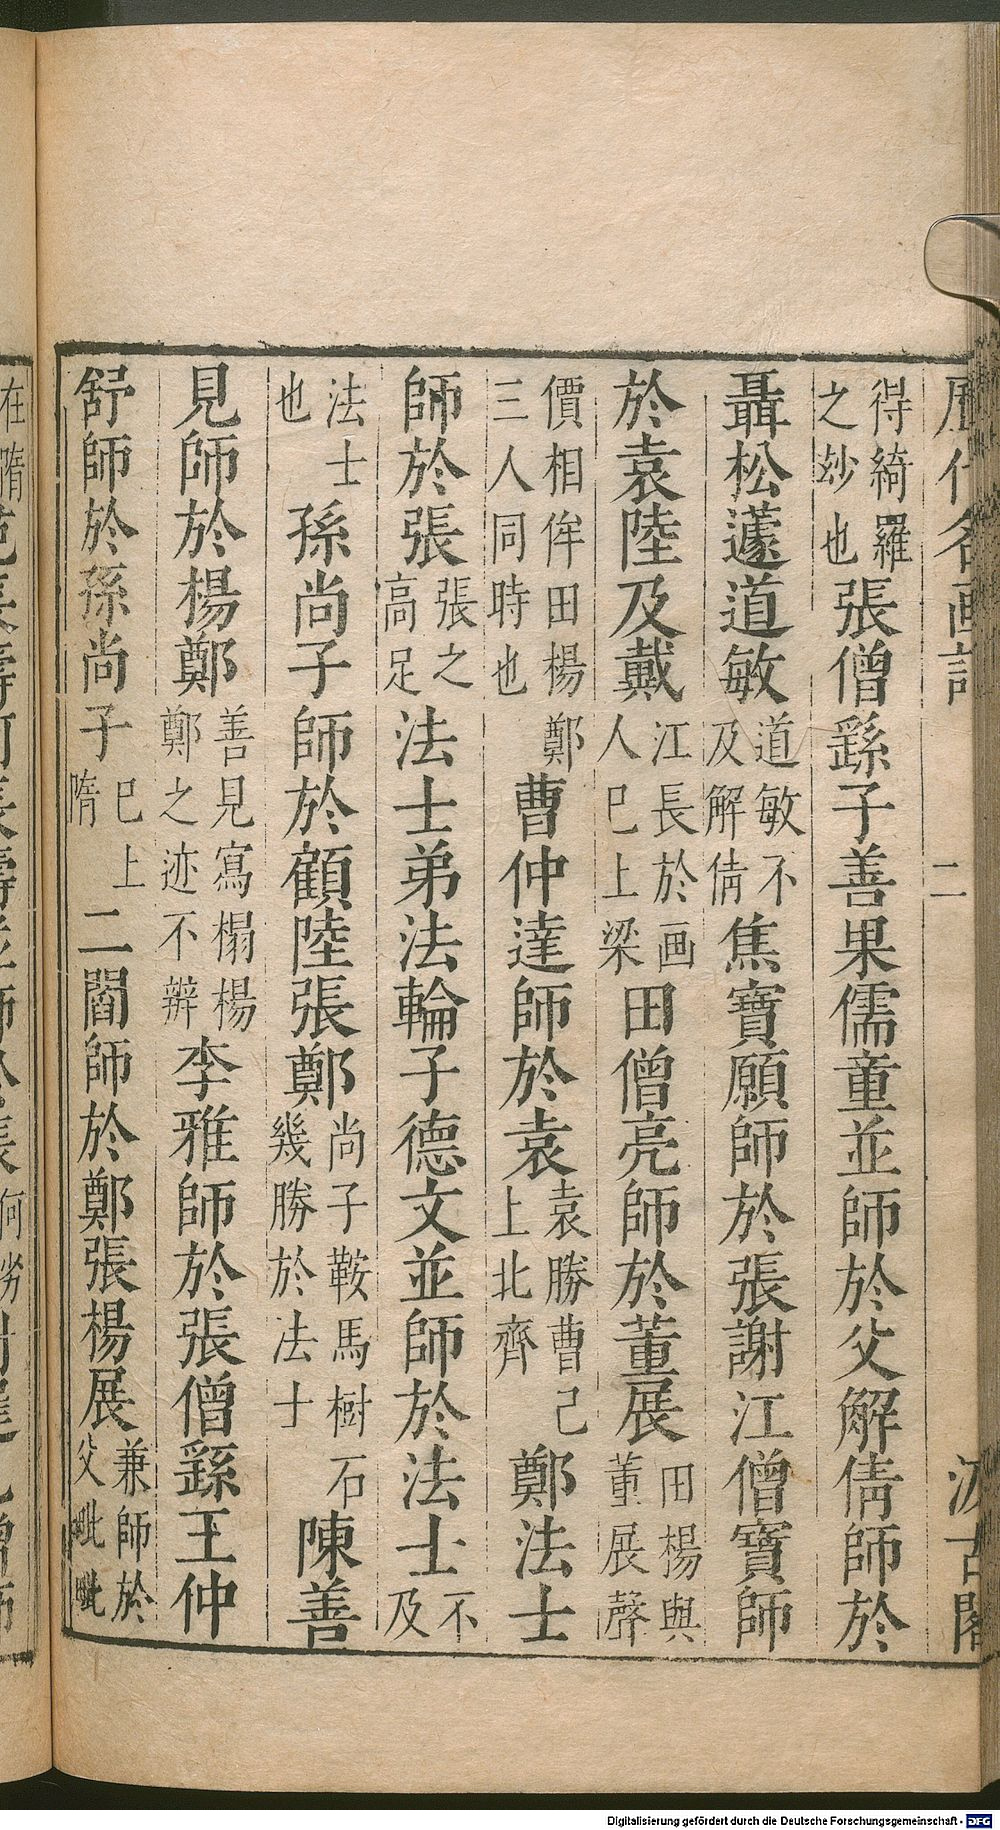 歷代名画記 二 汲古閣
得綺羅之玅也張僧繇子善果儒童並師於父解倩師於
聶松蘧道敏道敏不及解倩焦寶願師於張謝江僧寶師
於袁陸及戴江長於画人巳上梁田僧亮師於董展田楊與董展聲
價相侔田楊鄭三人同時也曹仲達師於袁袁勝曹己上北齊鄭法士
師於張張之高足法士弟法輪子德文並師於法士不及
法士也孫尚子師於顧陸張鄭尚子鞍馬樹石幾勝於法士陳善
見師於楊鄭善見寫榻楊鄭之迹不辨李雅師於張僧繇王仲
舒師於孫尚子巳上隋二閻師於鄭張楊展兼師於父毗毗
在隋
Digitalisierung gefördert durch die Deutsche Forschungsgemeinschaft - DFG